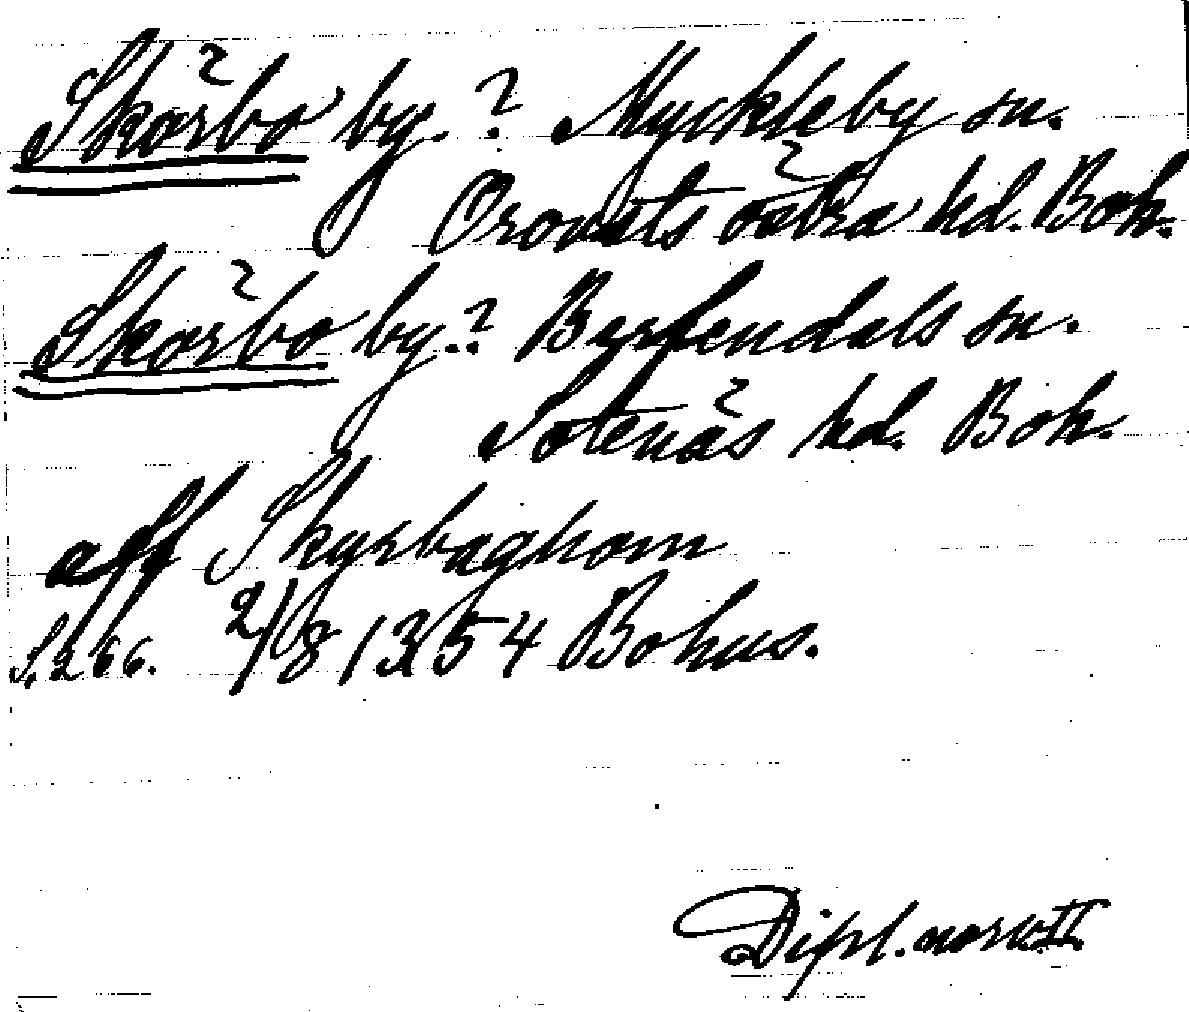 Skörbo by.? Myckleby sn.
Orousts östra hd. Boh.
Skörbo by.? Berfendals sn.
Sotenäs hd. Boh.
aff Skyrbaghom
S. 266. 2/8 1354 Bohus.
Dipl. norv. II.